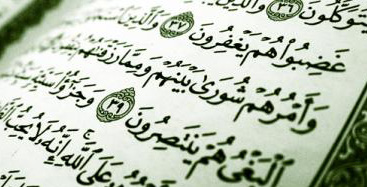 يَتَوَكَّلُونَ ٣٦ وَٱلَّذِينَ
غَضِبُوا۟ هُمْ يَغْفِرُونَ ٣٧ وَٱلَّذِينَ
وَأَمْرُهُمْ شُورَىٰ بَيْنَهُمْ وَمِمَّا رَزَقْنَٰهُمْ
ٱلْبَغْىُ هُمْ يَنتَصِرُونَ ٣٩ وَجَزَٰٓؤُا۟ سَيِّئَةٍ
عَلَى ٱللَّهِ إِنَّهُۥ لَا يُحِبُّ